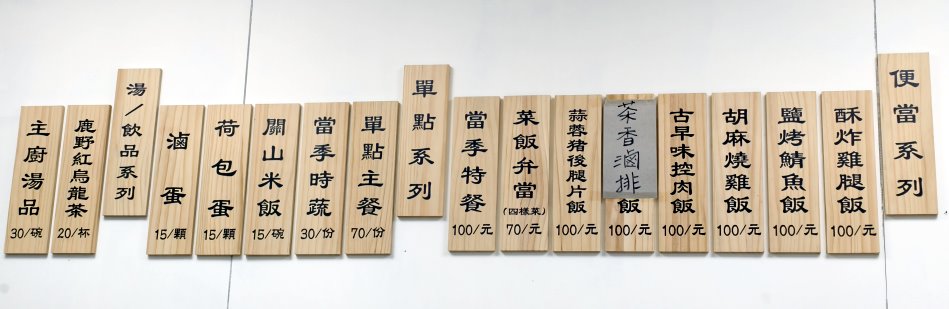 便當系列
酥炸雞腿飯
100/元
鹽烤鯖魚飯
100/元
胡麻燒雞飯
100/元
古早味控肉飯
100/元
茶香滷排飯
100/元
蒜蓉豬後腿片飯
100/元
菜飯弁當
(四樣菜)
70/元
當季特餐
100/元
單點系列
單點主餐
70/份
當季時蔬
30/份
關山米飯
15/碗
荷包蛋
15/顆
滷蛋
15/顆
湯/飲品系列
鹿野紅烏龍茶
20/杯
主廚湯品
30/碗